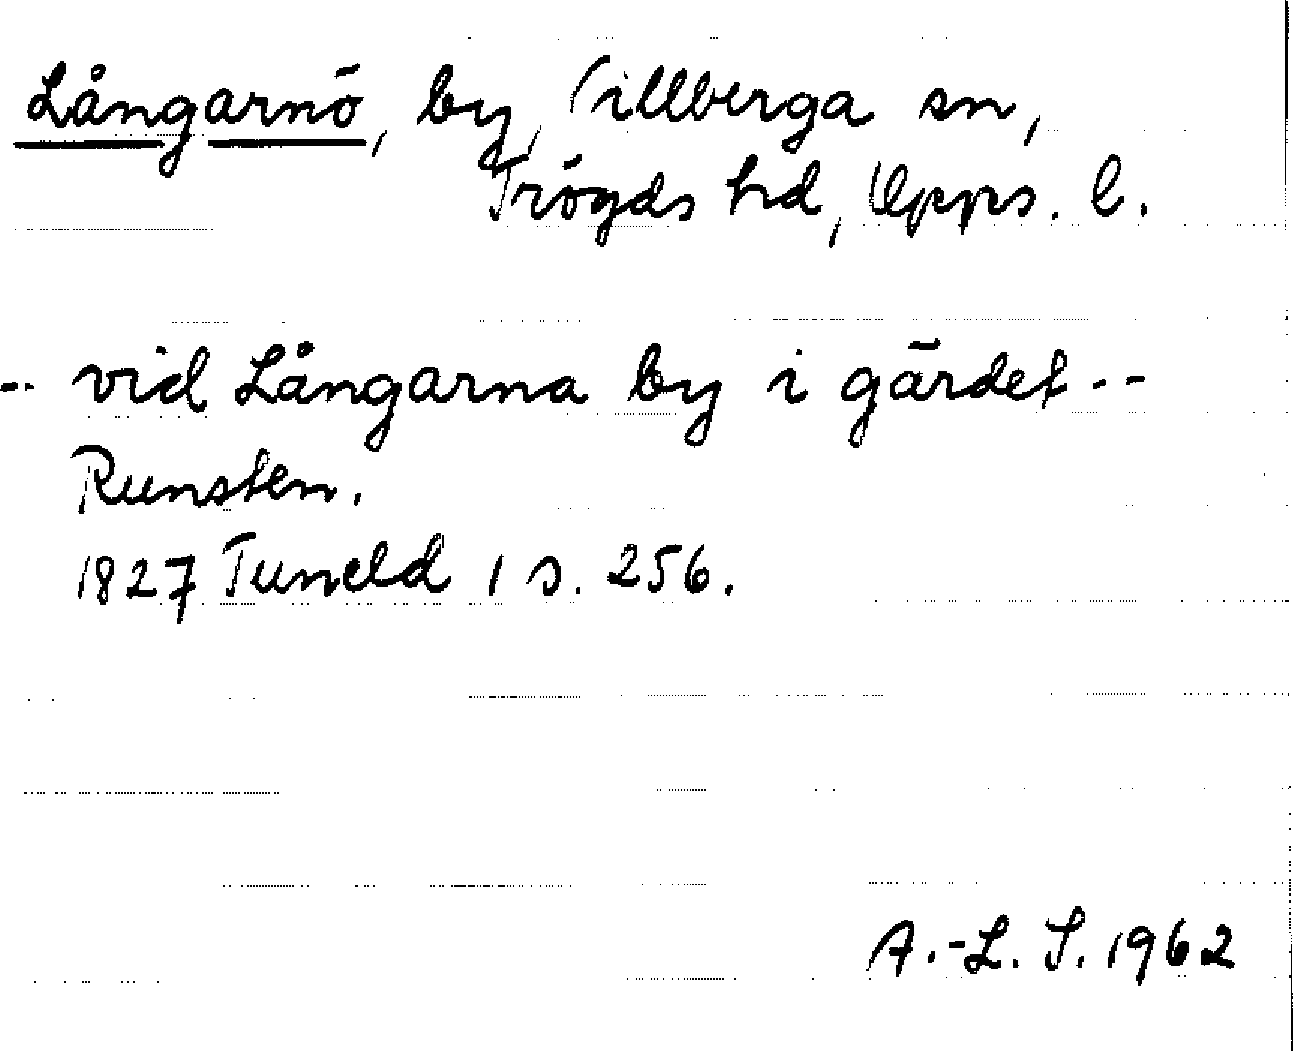 Långarnö, by, Villberga sn,
Trögds hd, Upps. l.
-- vid Långarna by i gärdet --
Runsten.
1827 Tuneld 1 s. 256.
A.-L. S. 1962